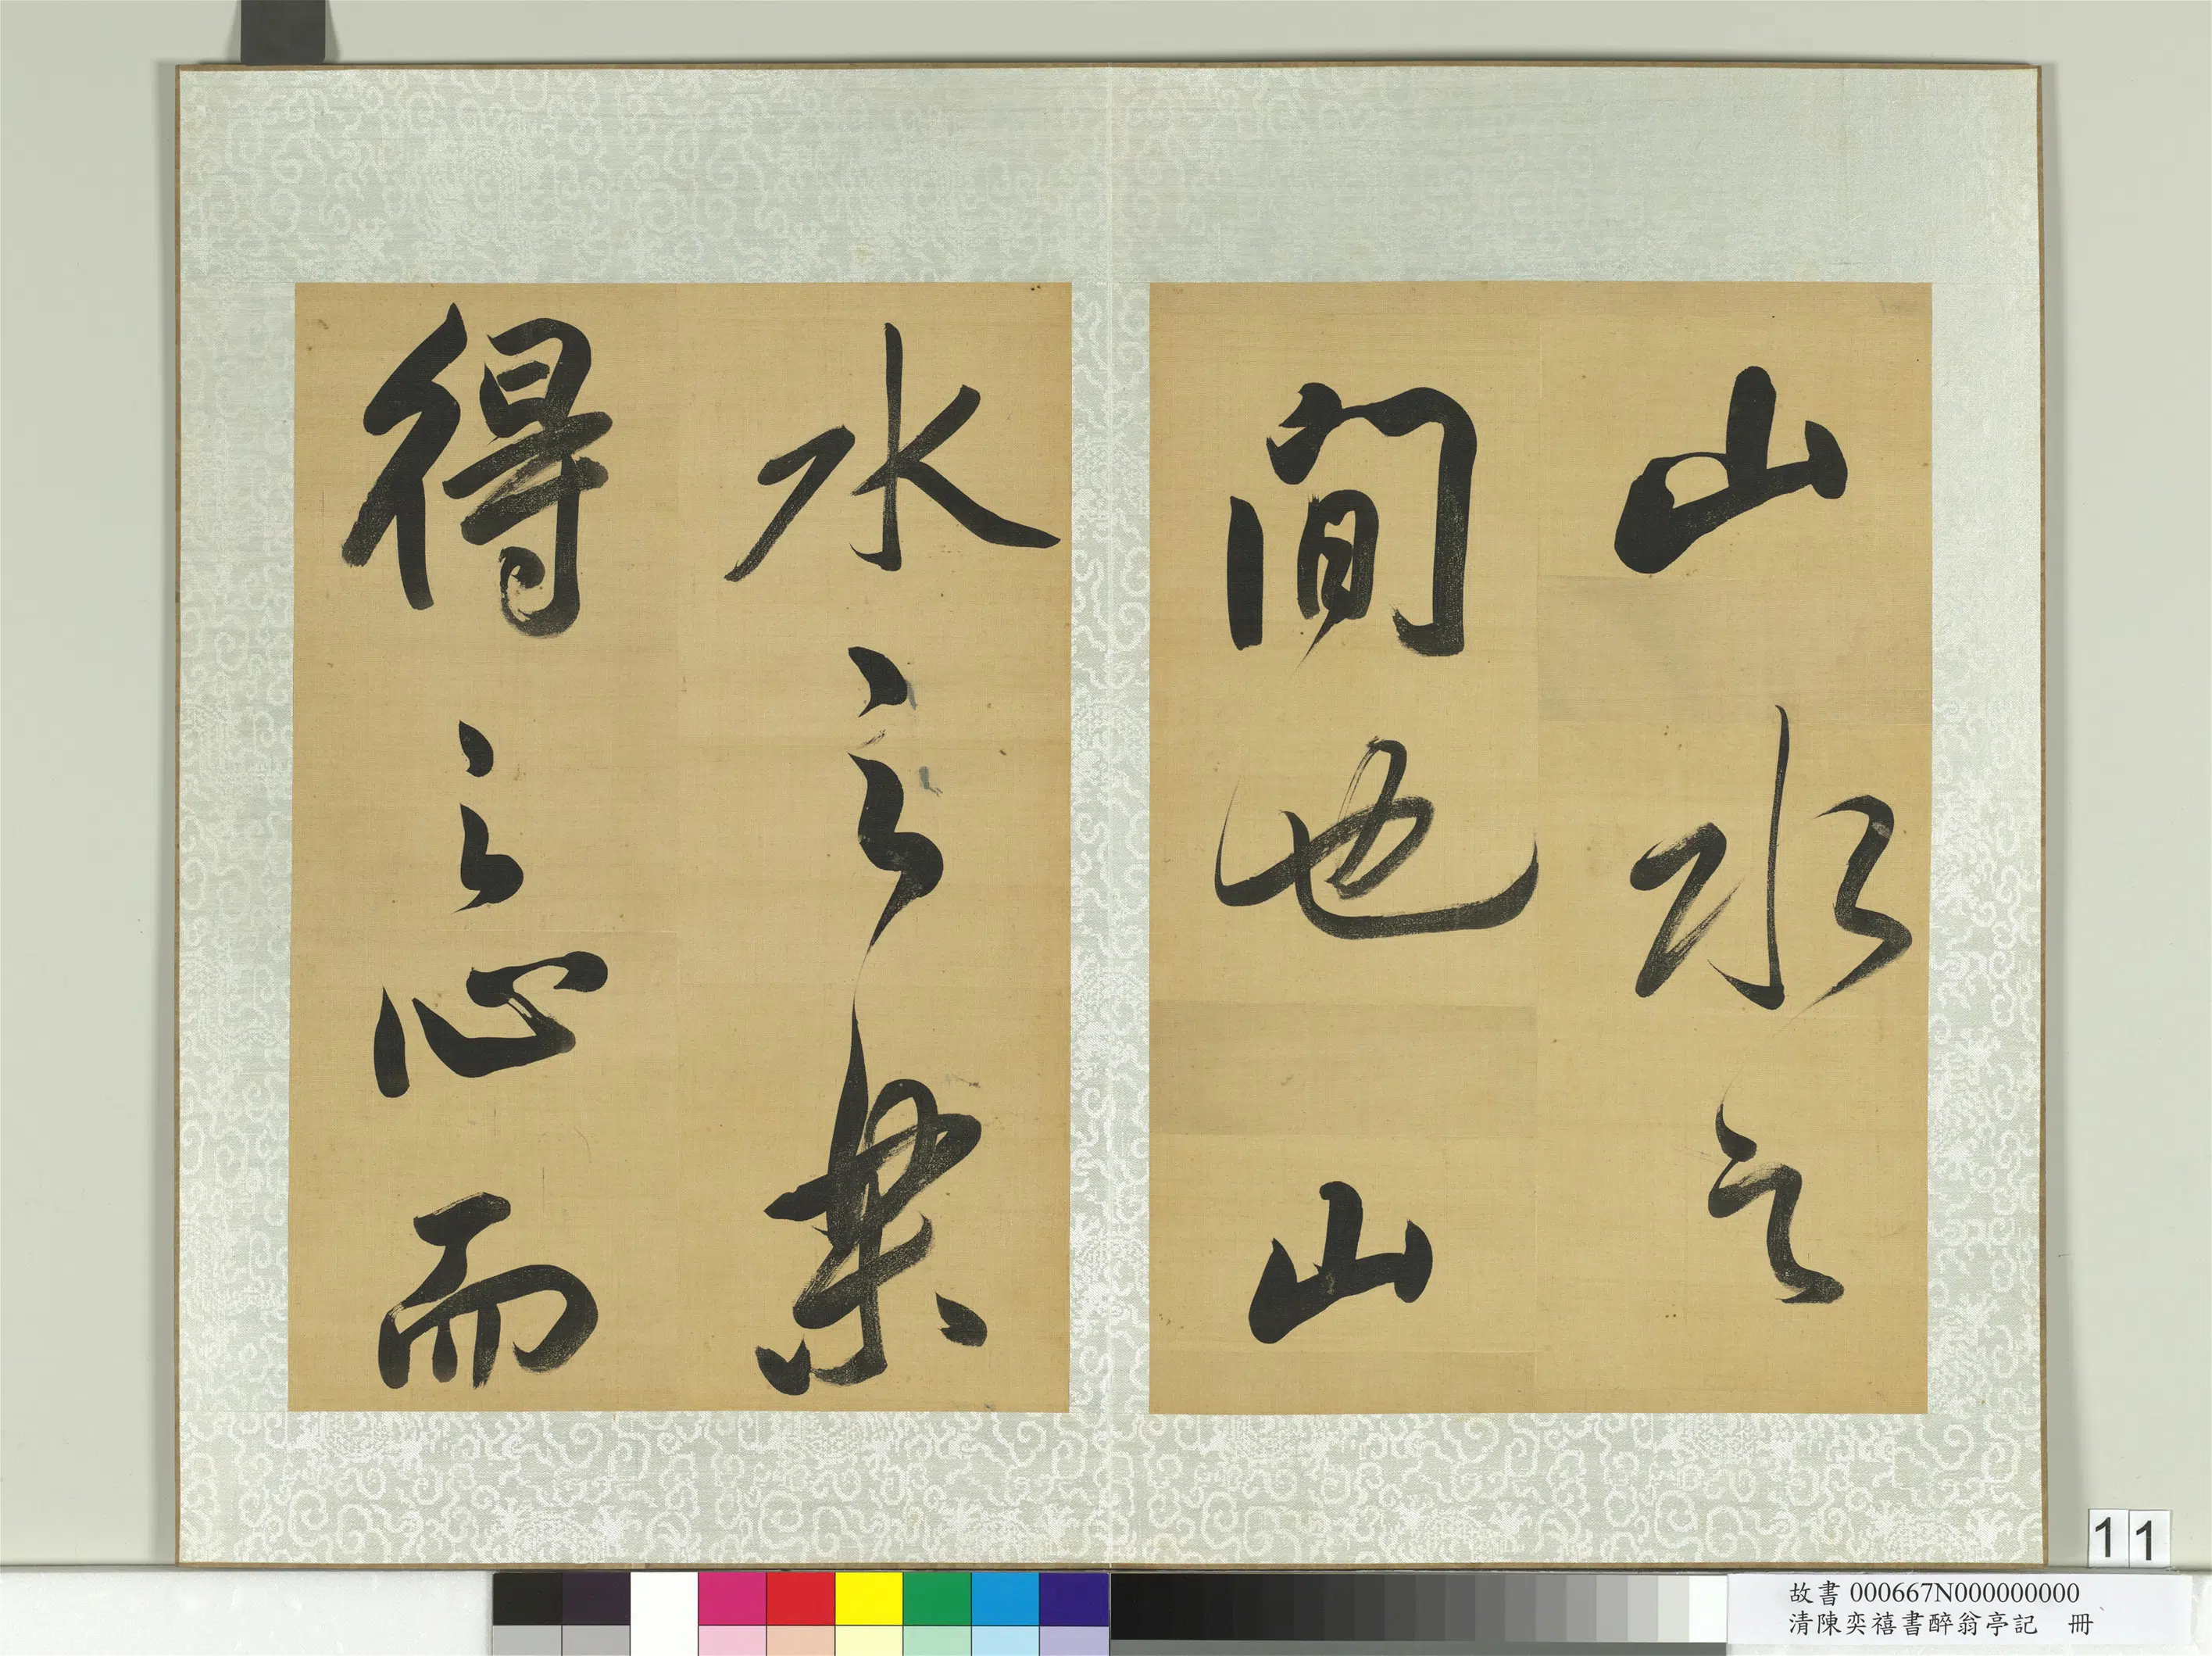 山水之
間也山
水之樂
得之心而
11
故書 000667N000000000
清陳奕禧書醉翁亭記 冊